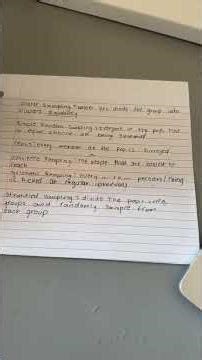 Cluster Sampling: when you divide the group into
clusters
Simple Random Sampling: everyone in the pop. has
an equal chance of being selected
Census: every member of the pop is surveyed
Sampling: the people that are easiest to
reach
Systematic Sampling: every person/thing
is picked at regular intervals
Stratified Sampling: divide the pop. into
groups and randomly sample from
each group